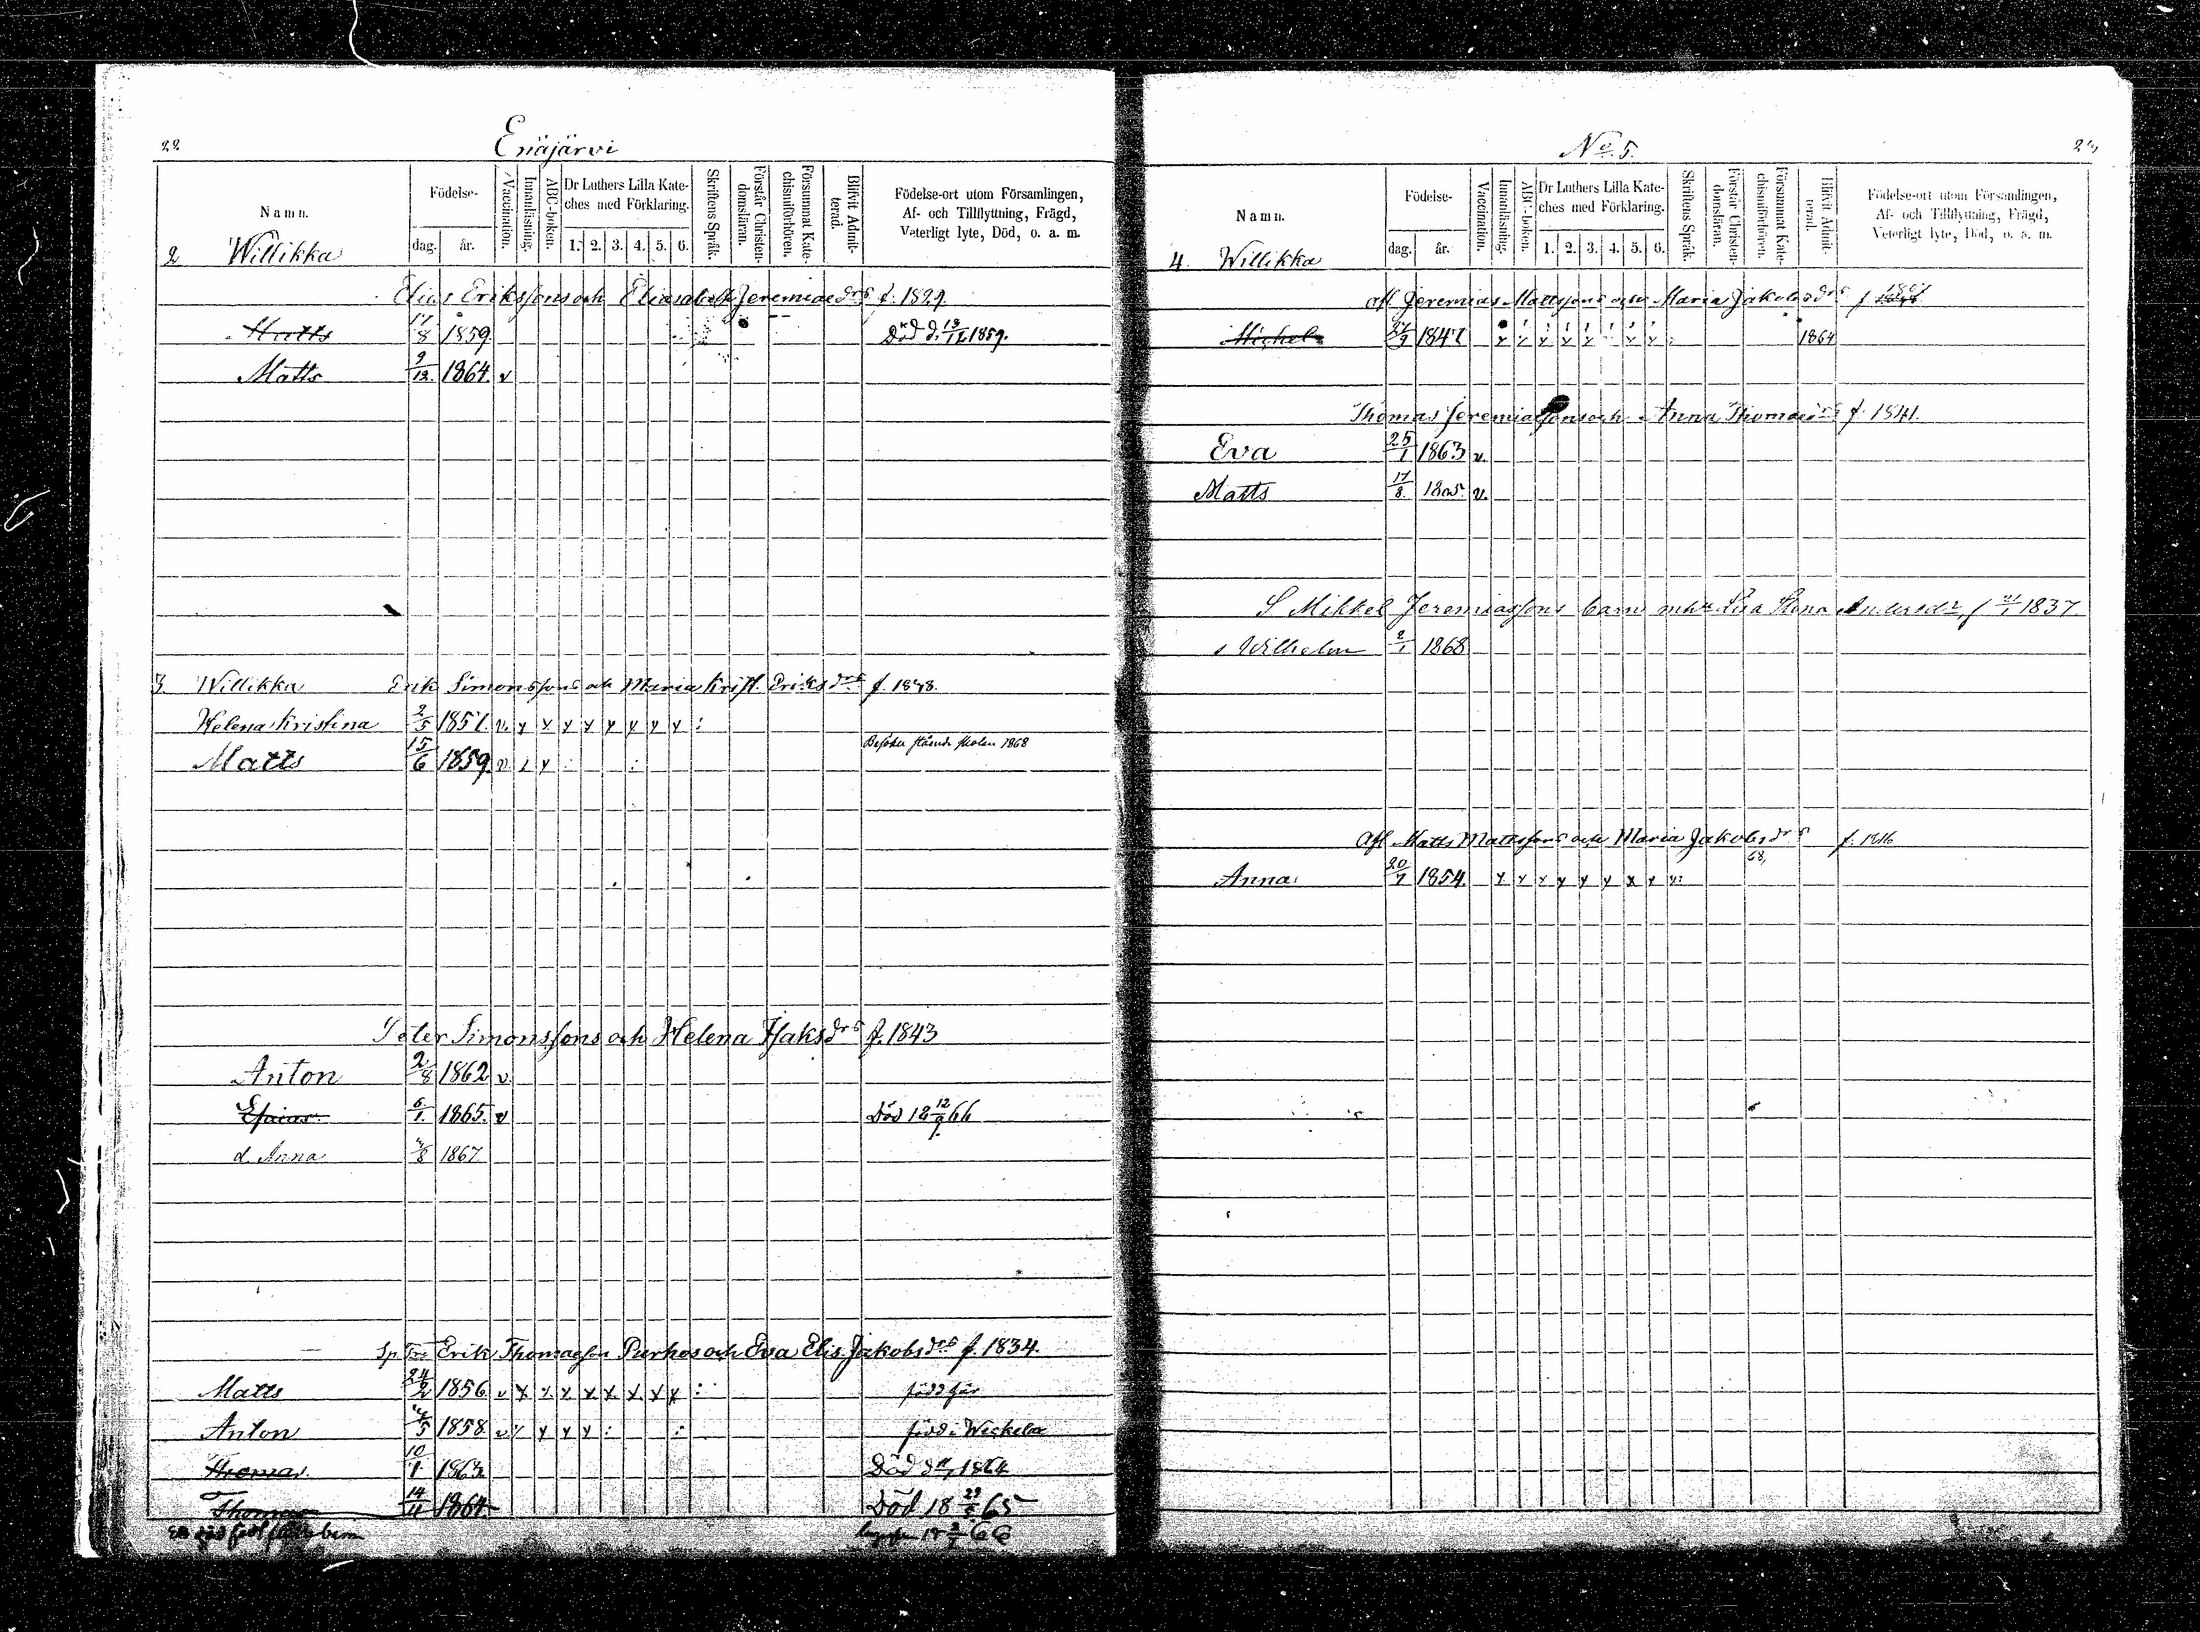 22
Enäjärvi
Namn.
Födelse-
dag.
år.
Vaccination.
Innanläsning.
ABC-boken.
Dr Luthers Lilla Kate-
ches med Förklaring.
1. 2. 3. 4. 5. 6.
Skriftens Språk.
Förstår Christen-
domsläran.
Försummat Kate-
chismiförhören.
Blifvit Admit-
terad.
Födelse-ort utom Församlingen,
Af- och Tillflyttning, Frägd,
Veterligt lyte, Död, o. a. m.
2 Willikka
Elias Erikssons och Eliasabeth Jeremiaedrs f. 1829.
Matts 17/8 1859. Död d. 1859.
Matts 9/12. 1864. v
3 Willikka Erik Simonssons och Maria Krist. Eriksdrs f. 1828.
Helena Kristina 2/5 1857. v. x x x x x x x x :
Matts 15/6 1859. v. x x : : 1868
Peter Simonssons och Helena Isaksdrs f. 1843
Anton 2/8 1862 v.
Esaias 6/1. 1865. v Död 18 12/9 66
d. Anna 1867
Erik Thomasson Purhos och Eva Elis. Jakobsdrs f. 1834.
Matts 24/2 1856. v x x x x x x x x : född här
Anton 1858. v x x x x : : född i Weckelax
Thomas 10/1 1863 Död 1864
Thomas 14/11 1864. Död 18 65
18 66
No. 5.
Namn.
Födelse-
dag.
år.
Vaccination.
Innanläsning.
ABC-boken.
Dr Luthers Lilla Kate-
ches med Förklaring.
1. 2. 3. 4. 5. 6.
Skriftens Språk.
Förstår Christen-
domsläran.
Försummat Kate-
chismiförhören.
Blifvit Admit-
terad.
Födelse-ort utom Församlingen,
Af- och Tillflyttning, Frägd,
Veterligt lyte, Död, o. a. m.
4. Willikka
Afl Jeremias Mattssons och Maria Jakobsdrs f
Michel 1847 x x x x x x x 1864
Thomas Jeremiassons och Anna Thomaedrs f. 1841.
Eva 25/1 1863 v.
Matts 17/8. v.
S Mikkel Jeremiassons barn Stina 1837
s Wilhelm 2/1 1868
Afl Matts Mattssons och Maria Jakobsdrs
68,
Anna 20/7 1854. x x x x x x x x x: